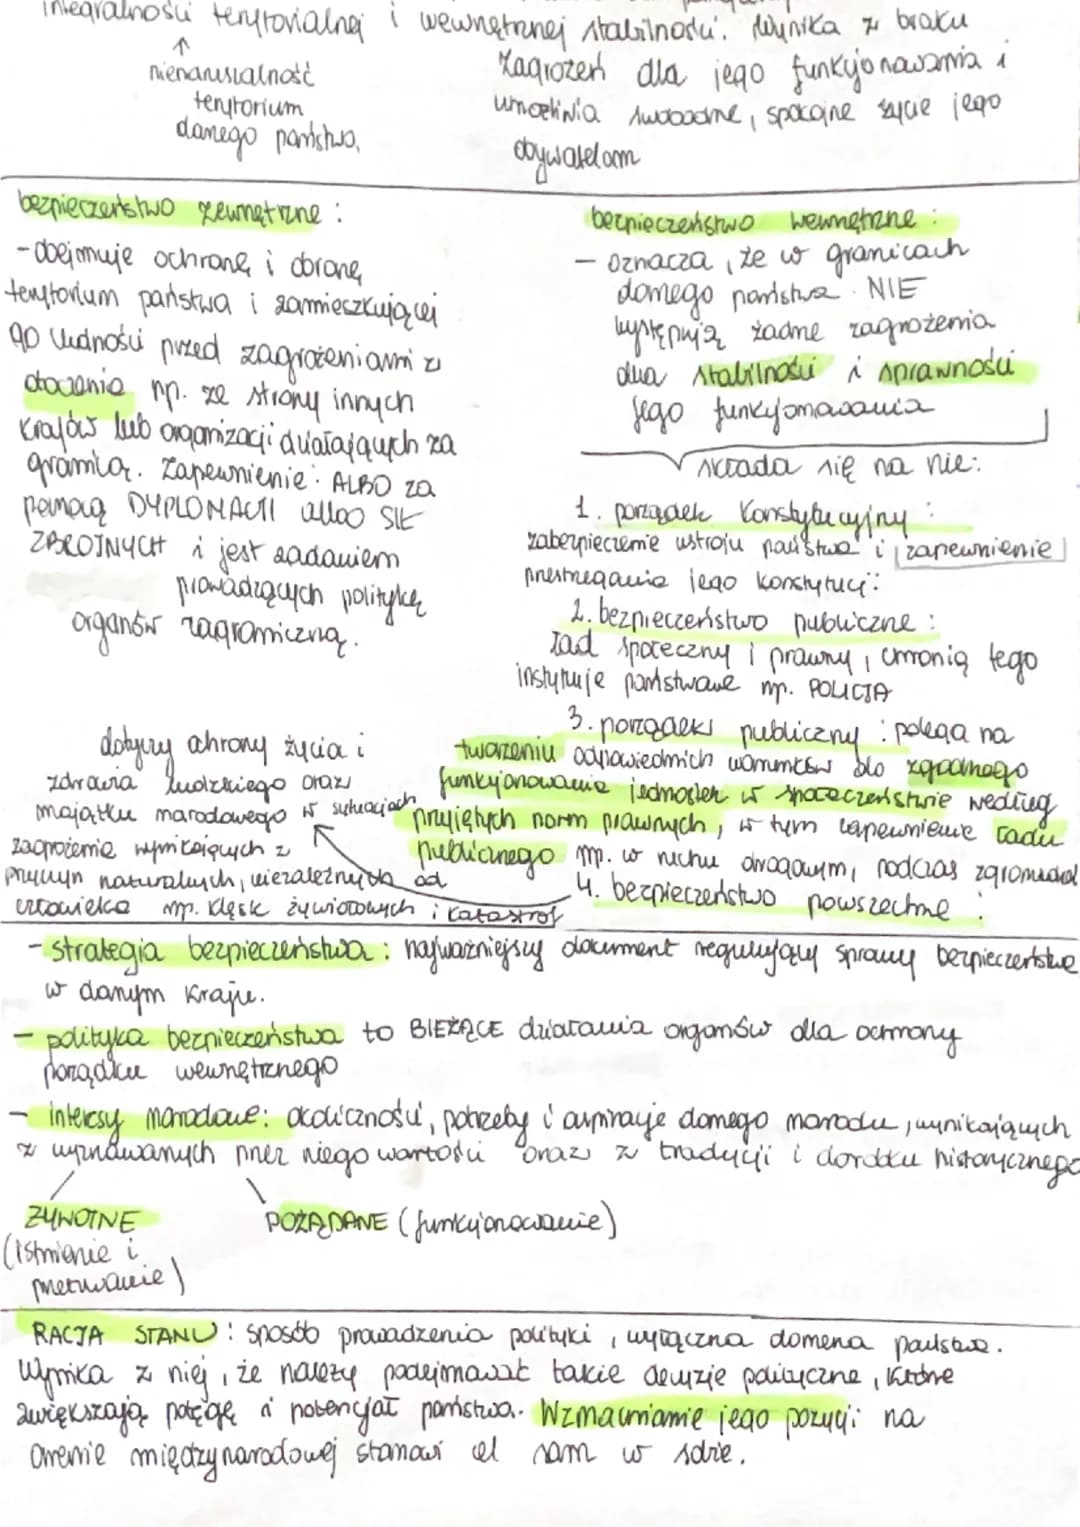 integralności terytorialnej i wewnętrznej stabilności. Wynika z braku
zagrożeń dla jego funkcjonowania i
umożliwia swobodne, spokojne życie jego
obywatelom
↑
nienaruszalność
terytorium
danego państwa.
bezpieczeństwo zewnętrzne :
- obejmuje ochronę i obronę
terytorium państwa i zamieszkującej
go ludności przed zagrożeniami z
otoczenia np. ze strony innych
krajów lub organizacji działających za
granicą. Zapewnienie: ALBO za
pomocą DYPLOMACJI albo SIŁ
ZBROJNYCH i jest zadaniem
prowadzących politykę
organów zagraniczną.
bezpieczeństwo wewnętrzne :
- oznacza, że w granicach
danego państwa NIE
występują żadne zagrożenia
dla stabilności i sprawności
jego funkcjonowania
składa się na nie:
1. porządek konstytucyjny :
zabezpieczenie ustroju państwa i zapewnienie
przestrzegania jego konstytucji
2. bezpieczeństwo publiczne :
ład społeczny i prawny, chronią tego
instytucje państwowe np. POLICJA
3. porządek publiczny : polega na
tworzeniu odpowiednich warunków do zgodnego
funkcjonowania jednostek w społeczeństwie według
przyjętych norm prawnych, w tym zapewnienie ładu
publicznego np. w ruchu drogowym, podczas zgromadzeń
4. bezpieczeństwo powszechne :
dotyczy ochrony życia i
zdrowia ludzkiego oraz
majątku narodowego w sytuacjach
zagrożenia wynikających z
przyczyn naturalnych, niezależnych od
człowieka np. klęsk żywiołowych i katastrof
- strategia bezpieczeństwa : najważniejszy dokument regulujący sprawy bezpieczeństwa
w danym kraju.
- polityka bezpieczeństwa to BIEŻĄCE działania organów dla ochrony
porządku wewnętrznego
- interesy narodowe: okoliczności, potrzeby i aspiracje danego narodu, wynikających
z wyznawanych przez niego wartości oraz z tradycji i dorobku historycznego
ŻYWOTNE
(istnienie i
przetrwanie)
POŻĄDANE (funkcjonowanie)
RACJA STANU : sposób prowadzenia polityki, wyłączna domena państwa.
Wynika z niej, że należy podejmować takie decyzje polityczne, które
zwiększają potęgę i potencjał państwa. Wzmacnianie jego pozycji na
arenie międzynarodowej stanowi cel sam w sobie.